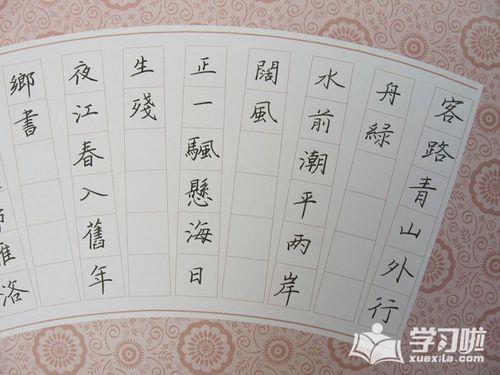 客路青山外行
舟綠
水前潮平两岸
闊風
正一颿懸海日
生殘
夜江春入舊年
鄉書
雁洛
学习啦
xuexila.com